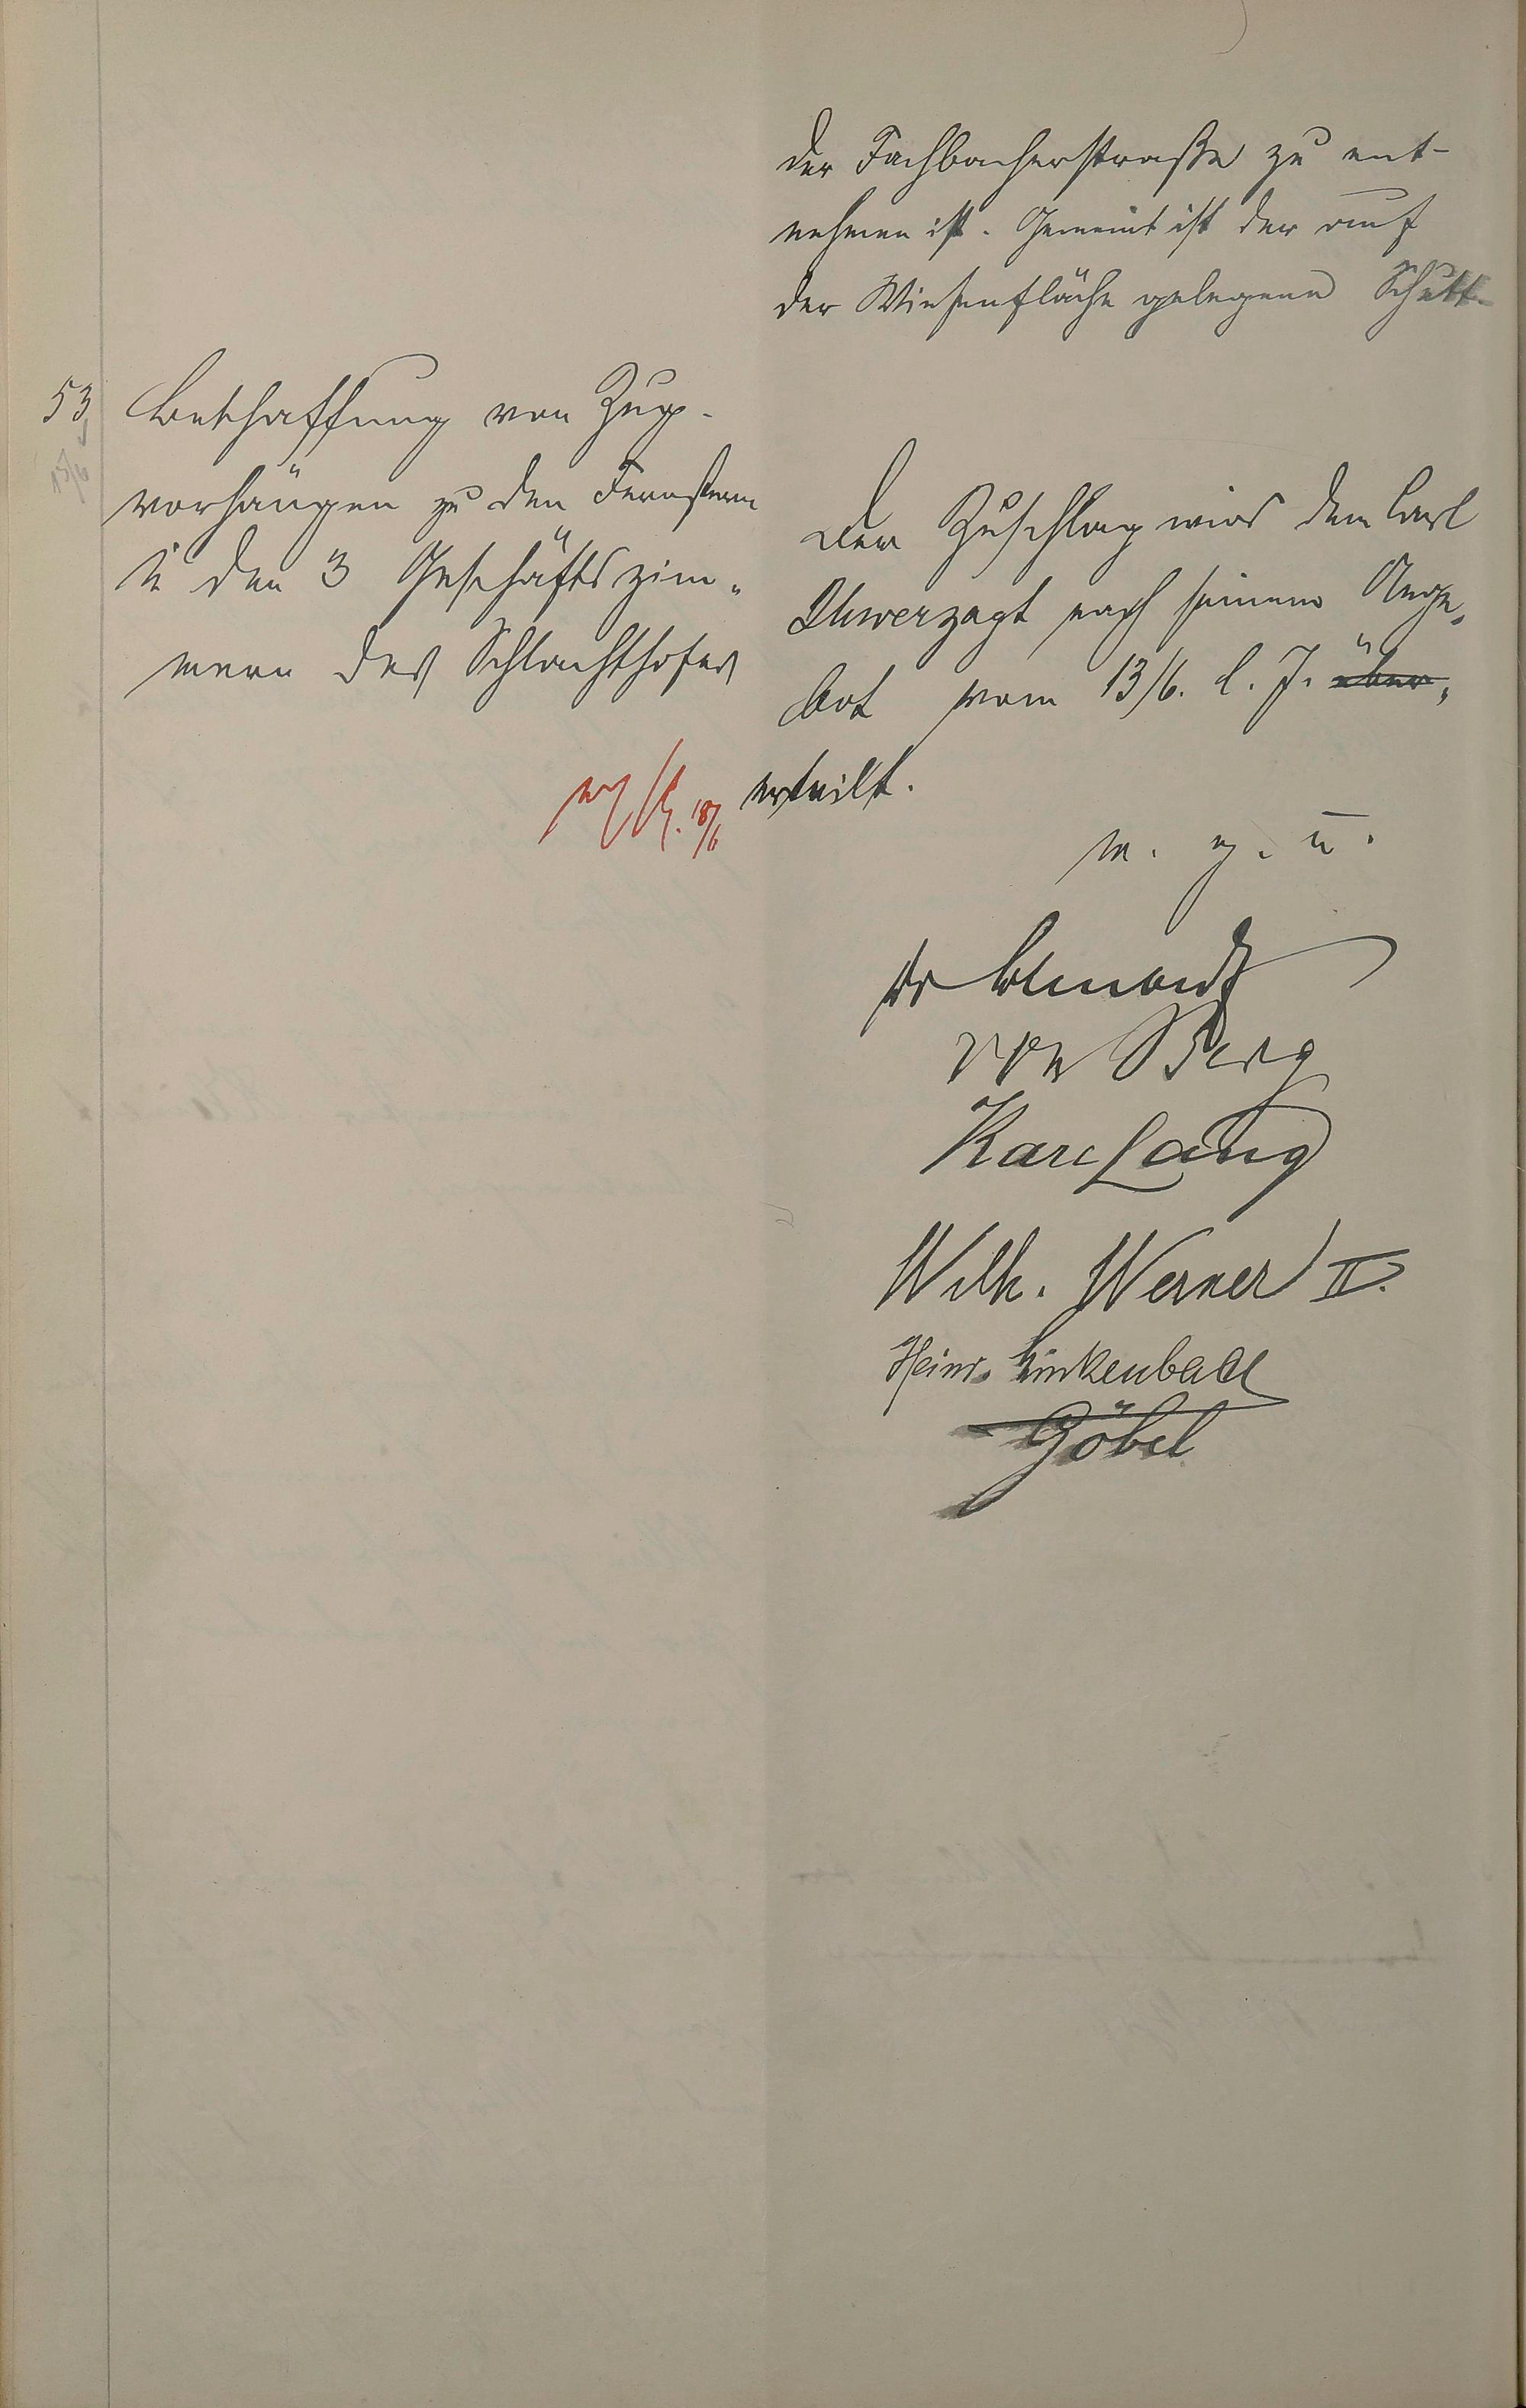 der Fachbacherstraße zu ent-
nehmen ist. Gemeint ist der auf
der Wiesenfläche gelegene Schutt.
53
Beschaffung von Zug-
vorhängen zu den Fenstern
in den 3 Geschäftszim-
mern des Schlachthofes
Der Zuschlag wird dem Carl
Unverzagt nach seinem Ange-
bot vom 13/6. l. J. über-
erteilt.
18/6
v. g. u.
von Berg
Karl Lang
Wilh. Werner II.
Heinr. Linkenbach
Göbel